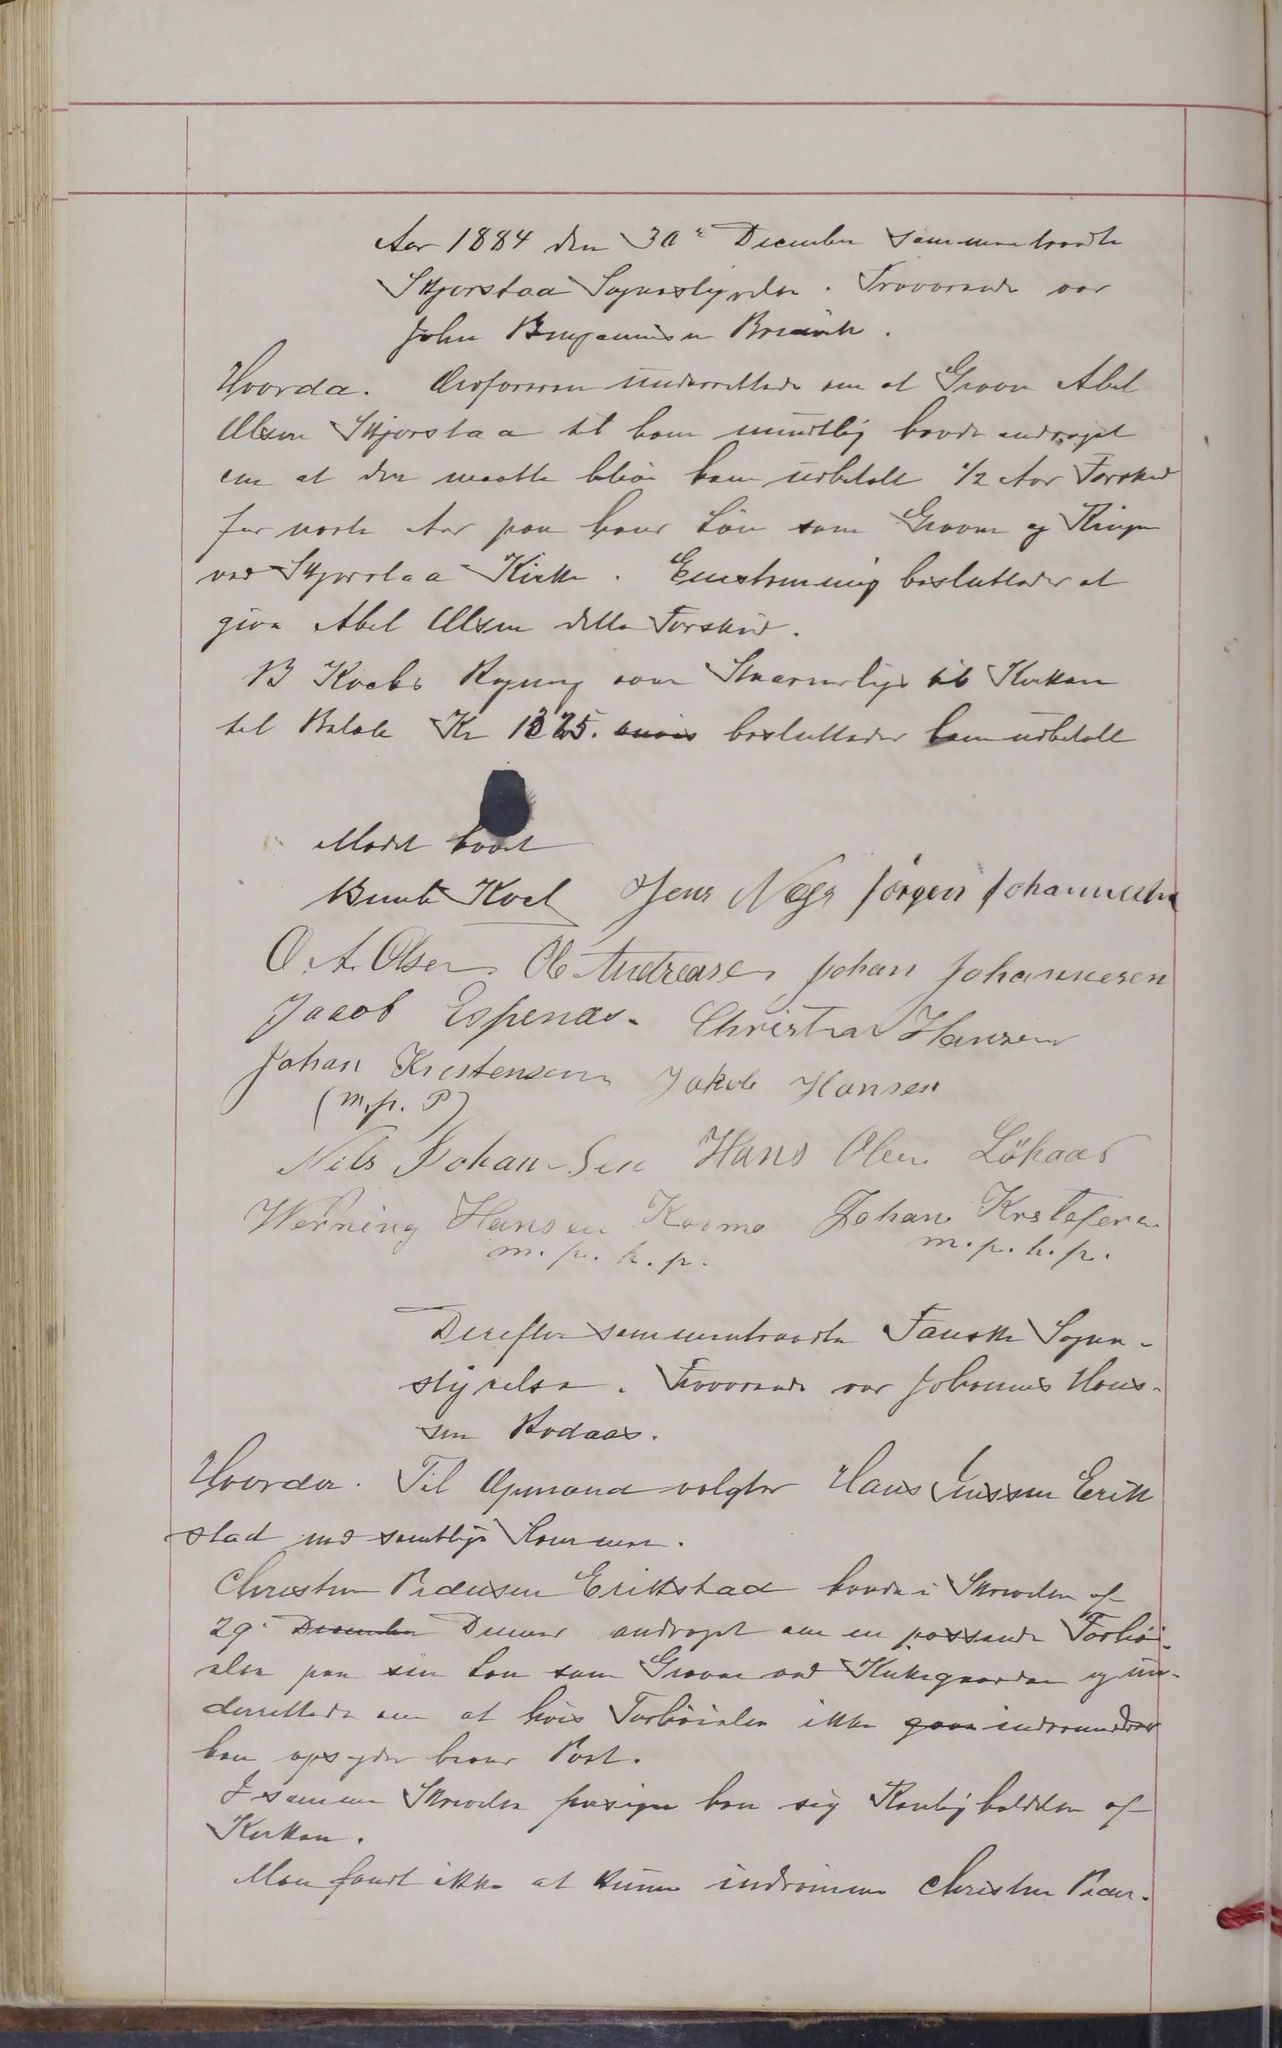 Aar 1884 den 30te December sammentraadte
Skjerstad Sognestyrelse. Fraværende var
John Benjaminsen
Hvorda. Ordføreren underrettede om at Graver Abel
Olsen Skjerstad til ham mundtlig havde andraget
om at der maatte blive ham udbetalt 1/2 Aar Forskud
for næste Aar paa hans Løn som Graver og Ringer
ved Skjerstad Kirke. Enstemmig besluttedes at
give Abel Olsen dette Forskud.
B Koch's Regning over Stearinlys til Kirken
til Beløb Kr 1325. besluttedes ham udbetalt
Mødet hævet
Bernt Koch Jens Jörgen Johannesen
O. A. Olsen. Ole Andreasen Johan Johannesen
Jacob Espenæs. Christian Hansen
Johan Kristensen Jakob Hansen
(m. p. P)
Nils Johan-Sen Hans Olsen Lökaas
Werning Hansen Kosmo Johan Kristofersen
m. p. h. p. m. p. h. p.
Derefter sammentraadte Fauske Sogne-
styrelse. Fraværende var Johannes Han-
sen Bodaas.
Hvorda. Til Opmand valgtes Hans Jenssen Erik
stad med samtlige Stemmer.
Christen Pedersen Erikstad havde i Skrivelse af
29. December Denne andraget om en passende Forhøi-
else paa sin Løn som Graver ved Kirkegaarden og un-
derrettede om at hvis Forhøielsen ikke indrømmedes
han opsyder hans Post.
I samme Skrivelse frasiger han sig Renligholdelsen af
Kirken.
Man fandt ikke at kunne indrømme Christen Peder-